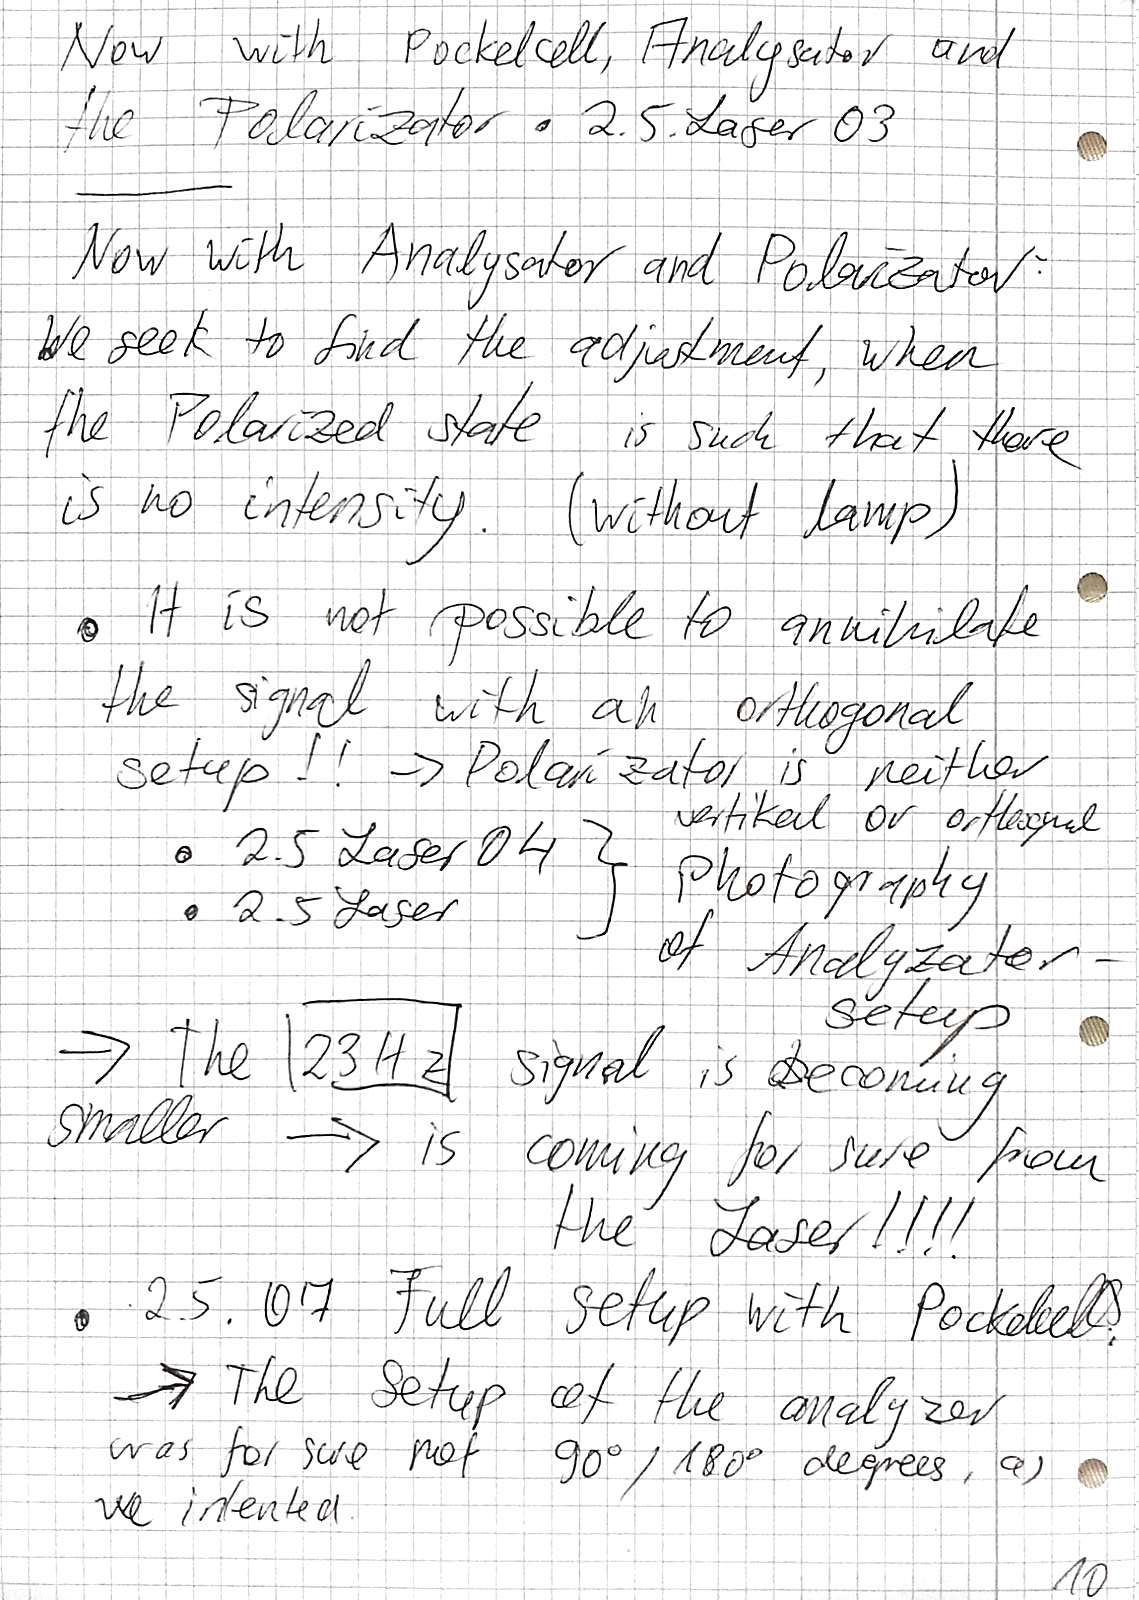 Now with Pockelcell, Analysator and
the Polarizator • 2.5. Laser 03
Now with Analysator and Polarizator:
We seek to find the adjustment, when
the Polarized state is such that there
is no intensity. (without lamp)
• It is not possible to annihilate
the signal with an orthogonal
setup!! → Polarizator is neither
vertikal or orthogonal
• 2.5 Laser 04
• 2.5 Laser
} Photography
of Analyzator-
setup
→ The 23 Hz signal is becoming
smaller → is coming for sure from
the Laser!!!!
• 2.5. 07 Full setup with Pockelcell
→ The Setup of the analyzer
was for sure not 90° / 180° degrees, as
we intented.
10